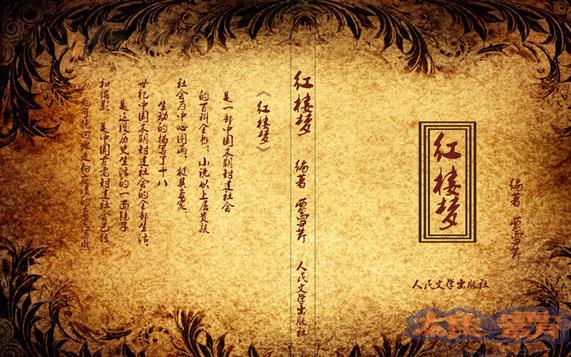 红楼梦
编著 曹雪芹
人民文学出版社
红楼梦 编著 曹雪芹 人民文学出版社
《红楼梦》
是一部中国末期封建社会
的百科全书:小说以上层贵族
社会为中心图画,极其真实
生动的描写了十八
世纪中国末期封建社会的全部生活,
是这段历史生活的一面镜子
和缩影,是中国古老封建社会已经
无可挽回地走向崩溃的真实写照